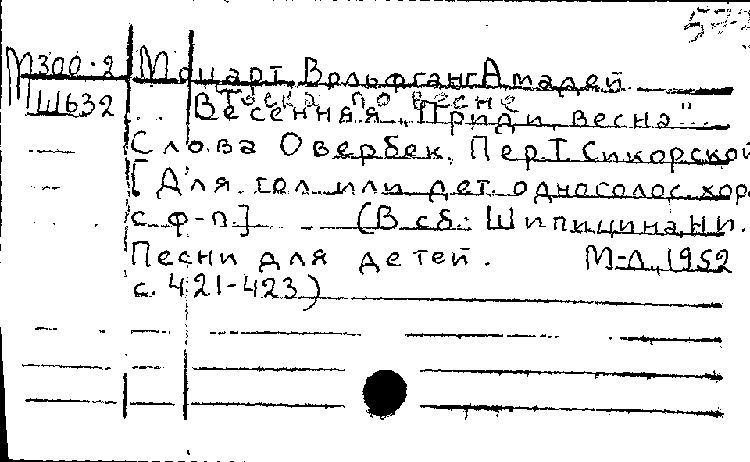 М300.2 Моцарт Вольфганг Амадей
Тоска по весне
Ш632 .. Весенняя „Приди, весна"..
Слова Овербек, Пер.Т.Сикорской
[Для гол. или дет. одноголос. хора
с ф-п] (В сб.: Шипицина, Н.И.
Песни для детей. М-Л., 1952
с. 421-423)